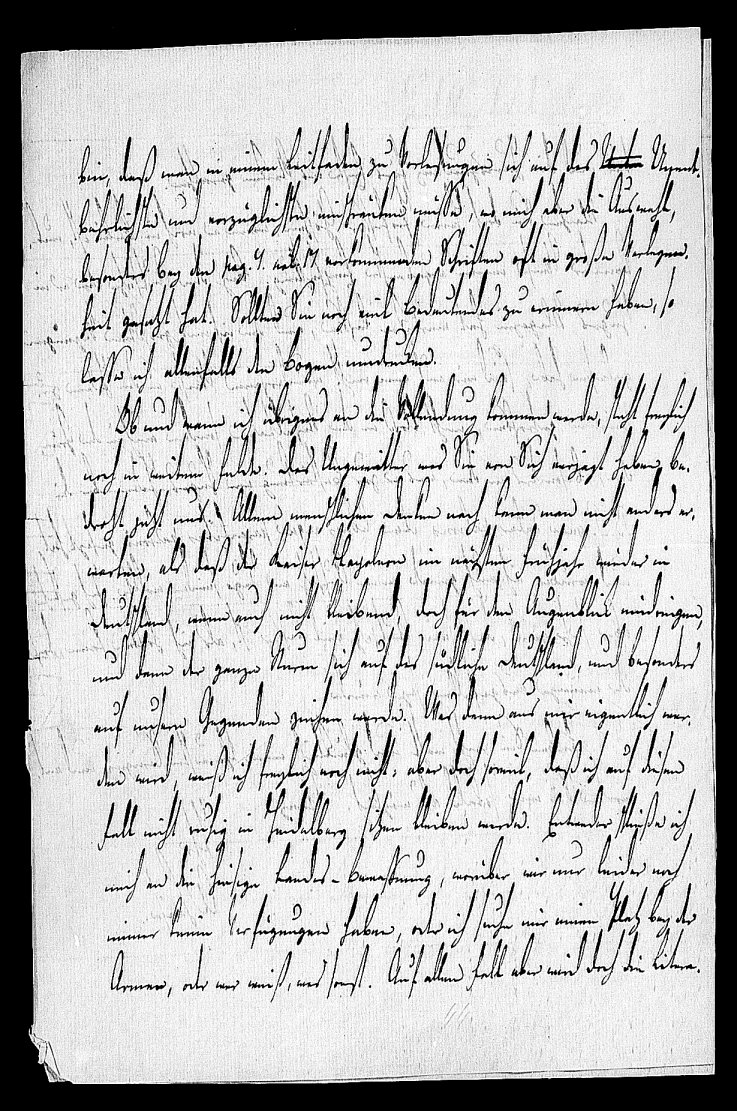 bin, daß man in einem Leitfaden zu Vorlesungen sich auf das Unent-
behrlichste und vorzüglichste einschränken müsse, wo mich aber die Auswahl,
besonders bey den pag. 9. vorkommenden Schriften oft in große Verlegen-
heit gesetzt hat. Sollten Sie noch viel Bedeutendes zu erinnern haben, so
lasse ich allenfalls den Bogen umdrucken.
Ob und wann ich übrigens an die Vollendung kommen werde, steht freylich
noch in weitem Felde. Das Ungewitter was Sie von Sich verjagt haben, be-
droht jetzt uns. Allem menschlichen Denken nach kann man nicht anders er-
warten, als daß der Kaiser Napoleon im nächsten Frühjahr wieder in
Deutschland, wenn auch nicht bleibend, doch für den Augenblick eindringen,
und dann der ganze Sturm sich auf das südliche Deutschland, und besonders
auf unsere Gegenden ziehen werde. Was dann aus mir eigentlich wer-
den wird, weiß ich freylich noch nicht: aber doch soviel, daß ich auf diesen
Fall nicht ruhig in Heidelberg sitzen bleiben werde. Entweder schließe ich
mich an die hiesige Landes-Bewaffnung, worüber wir nur leider noch
immer keine Verfügungen haben, oder ich suche mir einen Platz bey der
Armee, oder wer weiß, was sonst. Auf allen Fall aber wird doch die Litera-